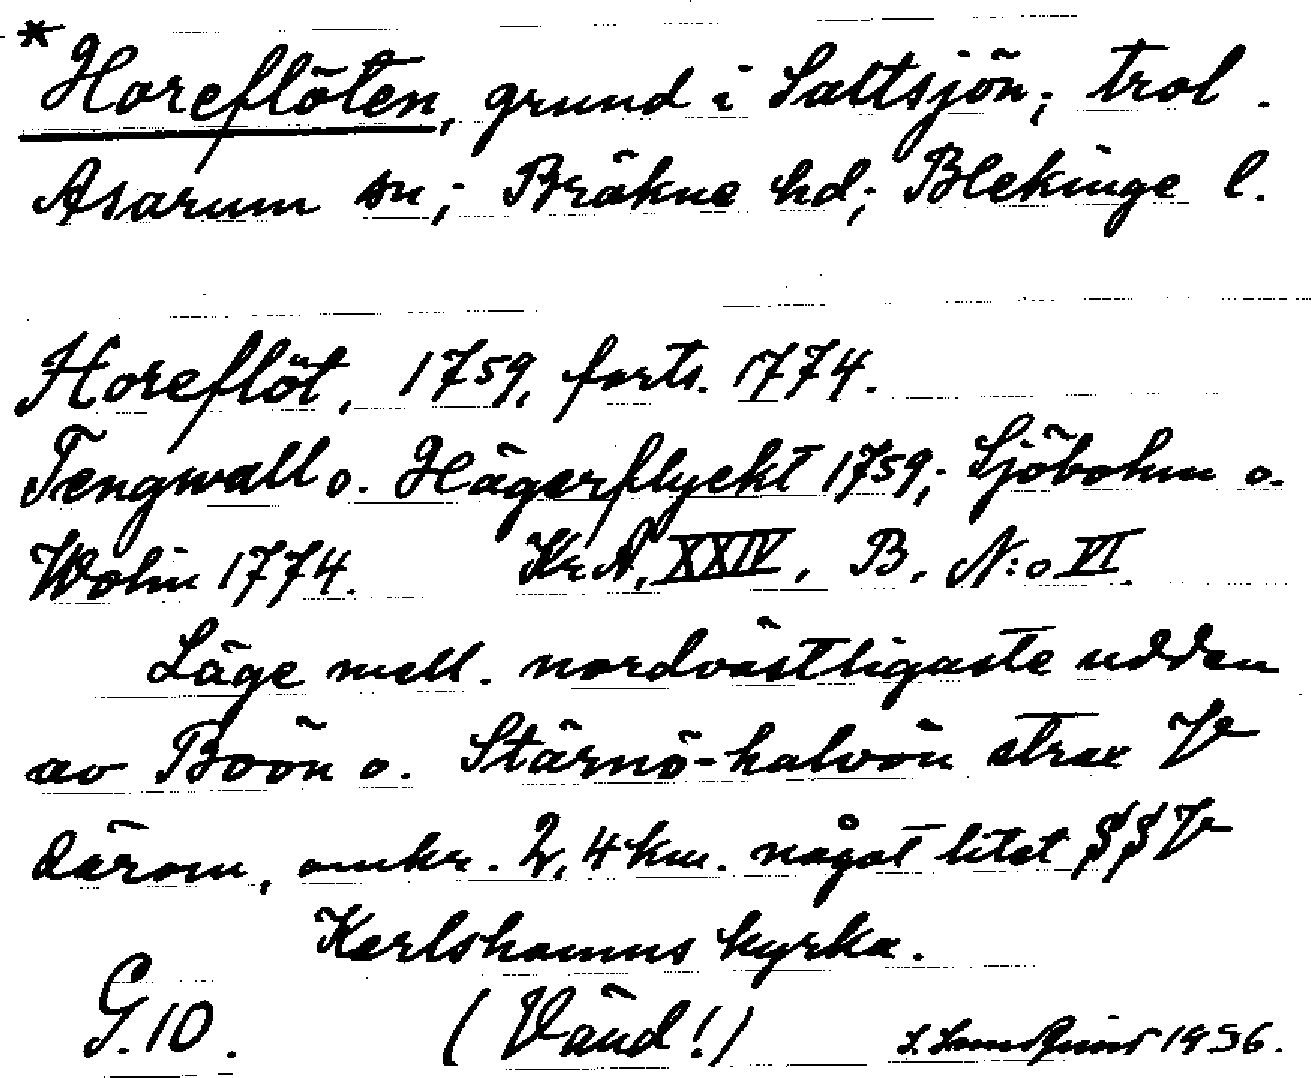 *Horeflöten, grund i Saltsjön; trol.
Asarum sn; Bräkne hd; Blekinge l.
Horeflöt, 1759, forts. 1774.
Tengwall o. Hägerflyckt 1759; Sjöbohm o.
Wohn 1774. Kr.A, XXIV, B. N:o VI.
Läge mell. nordvästligaste udden
av Boön o. Stärnö-halvön strax V
därom, omkr. 2,4 km. något litet SSV
Karlshamns kyrka.
G.10. (Vänd!) 1936.